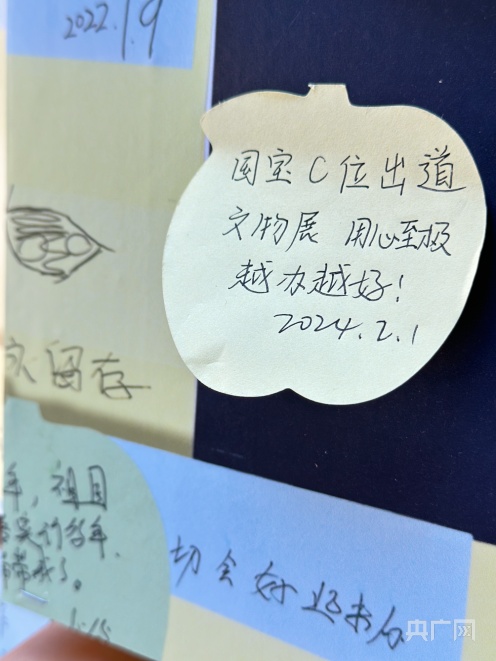 2022.1.9
国宝C位出道
文物展 用心至极
越办越好！
2024.2.1
留存
年，祖国
切会好起来的
央广网